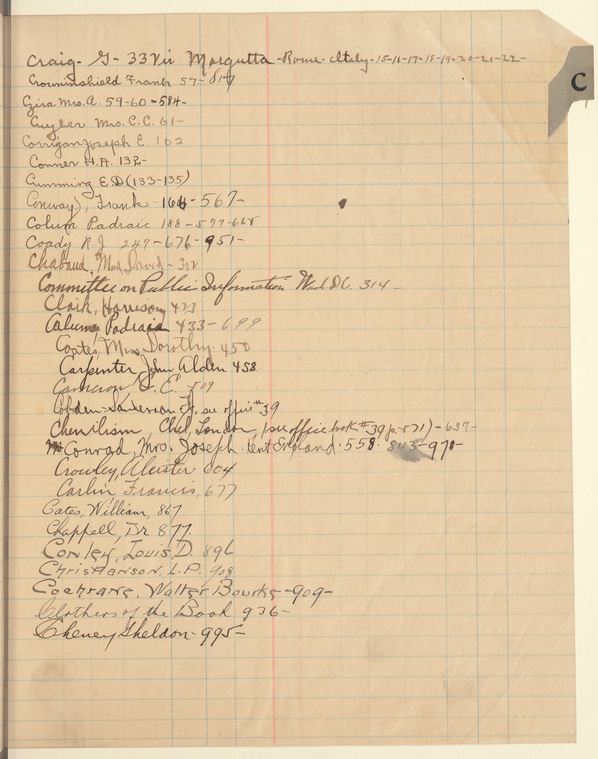 C
Craig - G - 33 Via Margutta - Rome - Italy - 15-16-17-18-19-20-21-22-
Crowninshield Frank 57-
Mrs. A. 59-60-584-
Cuyler Mrs. C.C. 61-
Corrigan Joseph E. 102
Conner H.A. 132-
Cumming E.D (133-135)
Conway, Frank - 164-567-
Colum Padraic 188-579-668
Coady R.J. 247-676-951-
Chabaud, David - 302
Committee on Public Information Wash D.C. 314-
Clark, Harrison 423
Padraic 433-699
Coates, Mrs. Dorothy. 450
Carpenter John Alden 458
Cameron E. 509
Cobden-Sanderson see office #39
Chel, London, (see office book #39 p. 571)-637-
Conrad, Mrs. Joseph. Kent England. 558. 843-971-
Crowley, Aleister 604
Carlin Francis, 677
Cates, William, 867
Chappell, Dr 877.
Conley, Louis D. 896
Christianson, L.P. 908
Cochrane, Walter Bourke-909-
Clothers of the Book 936-
Cheney Sheldon-995-